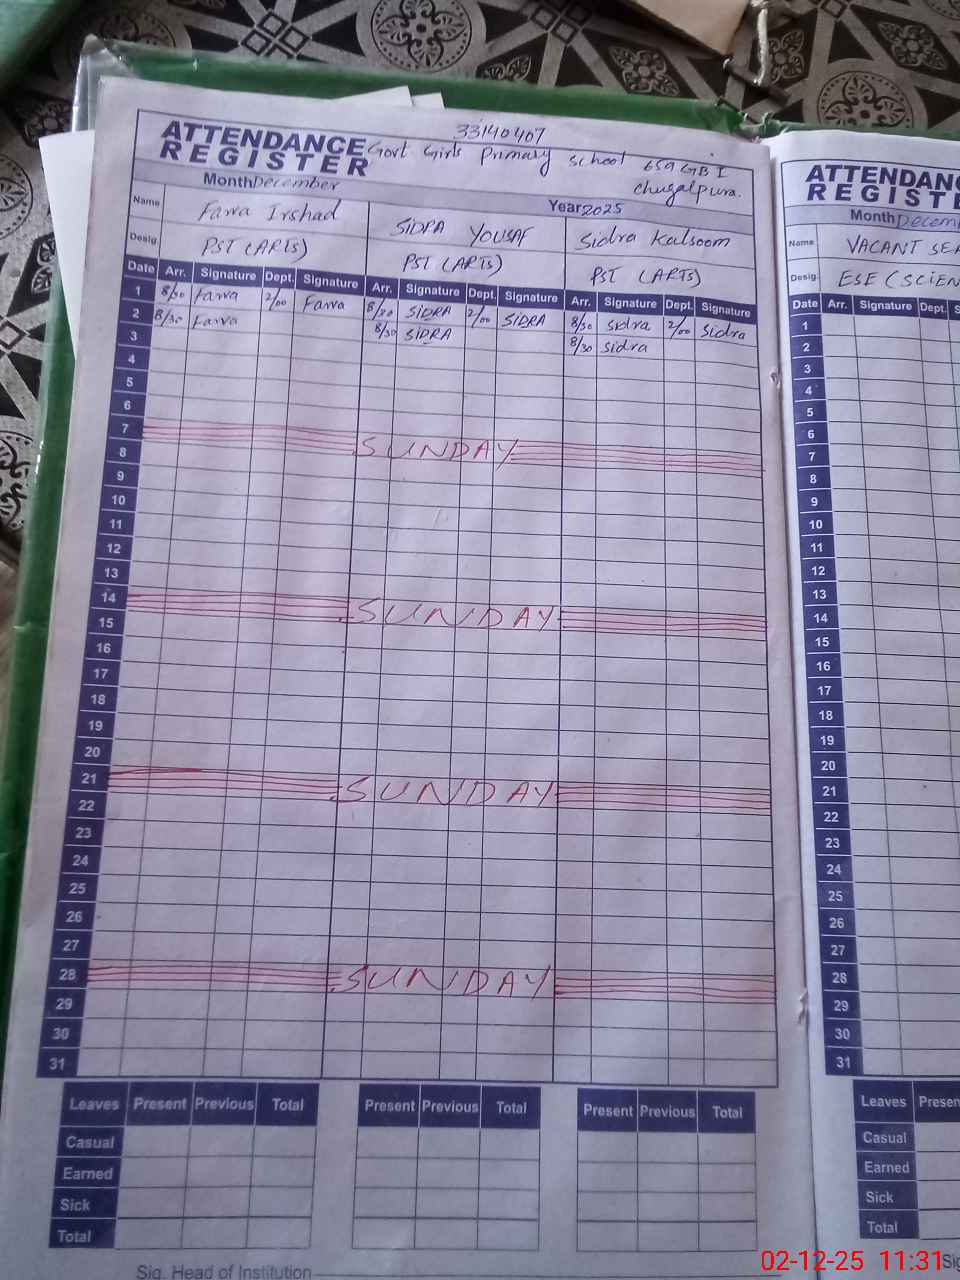 33140407
ATTENDANCE REGISTER Govt. Girls Primary school 659 GB I
chugalpura.
Month December Year 2025
Name Farwa Irshad SIDRA YOUSAF Sidra Kalsoom
Desig. PST (ARTS) PST (ARTS) PST (ARTS)
Date Arr. Signature Dept. Signature Arr. Signature Dept. Signature Arr. Signature Dept. Signature
1 8/30 Farwa 2/00 Farwa 8/30 SIDRA 2/00 SIDRA 8/30 sidra 2/00 Sidra
2 8/30 Farwa 8/30 SIDRA 8/30 sidra
3
4
5
6
7 SUNDAY
8
9
10
11
12
13
14 SUNDAY
15
16
17
18
19
20
21 SUNDAY
22
23
24
25
26
27
28 SUNDAY
29
30
31
Leaves Present Previous Total Present Previous Total Present Previous Total
Casual
Earned
Sick
Total
Sig. Head of Institution
ATTENDANC
REGISTE
Month Decem
Name VACANT SEA
Desig. ESE (SCIEN
Date Arr. Signature Dept. S
1
2
3
4
5
6
7
8
9
10
11
12
13
14
15
16
17
18
19
20
21
22
23
24
25
26
27
28
29
30
31
Leaves Presen
Casual
Earned
Sick
Total
Sig
02-12-25 11:31